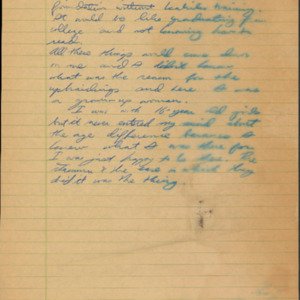 foundation without barbies training.
It would be like graduating from
college and not knowing how to
read.
All these things would come down
on me and I didn't know
what was the reason for the
upbraidings and here I was
a grown up women.
I was with 16 year old girls
but it never entered my mind about
the age difference because I
knew what I was there for
I was just happy to be there. The
& the ease in which they
did it was the thing.